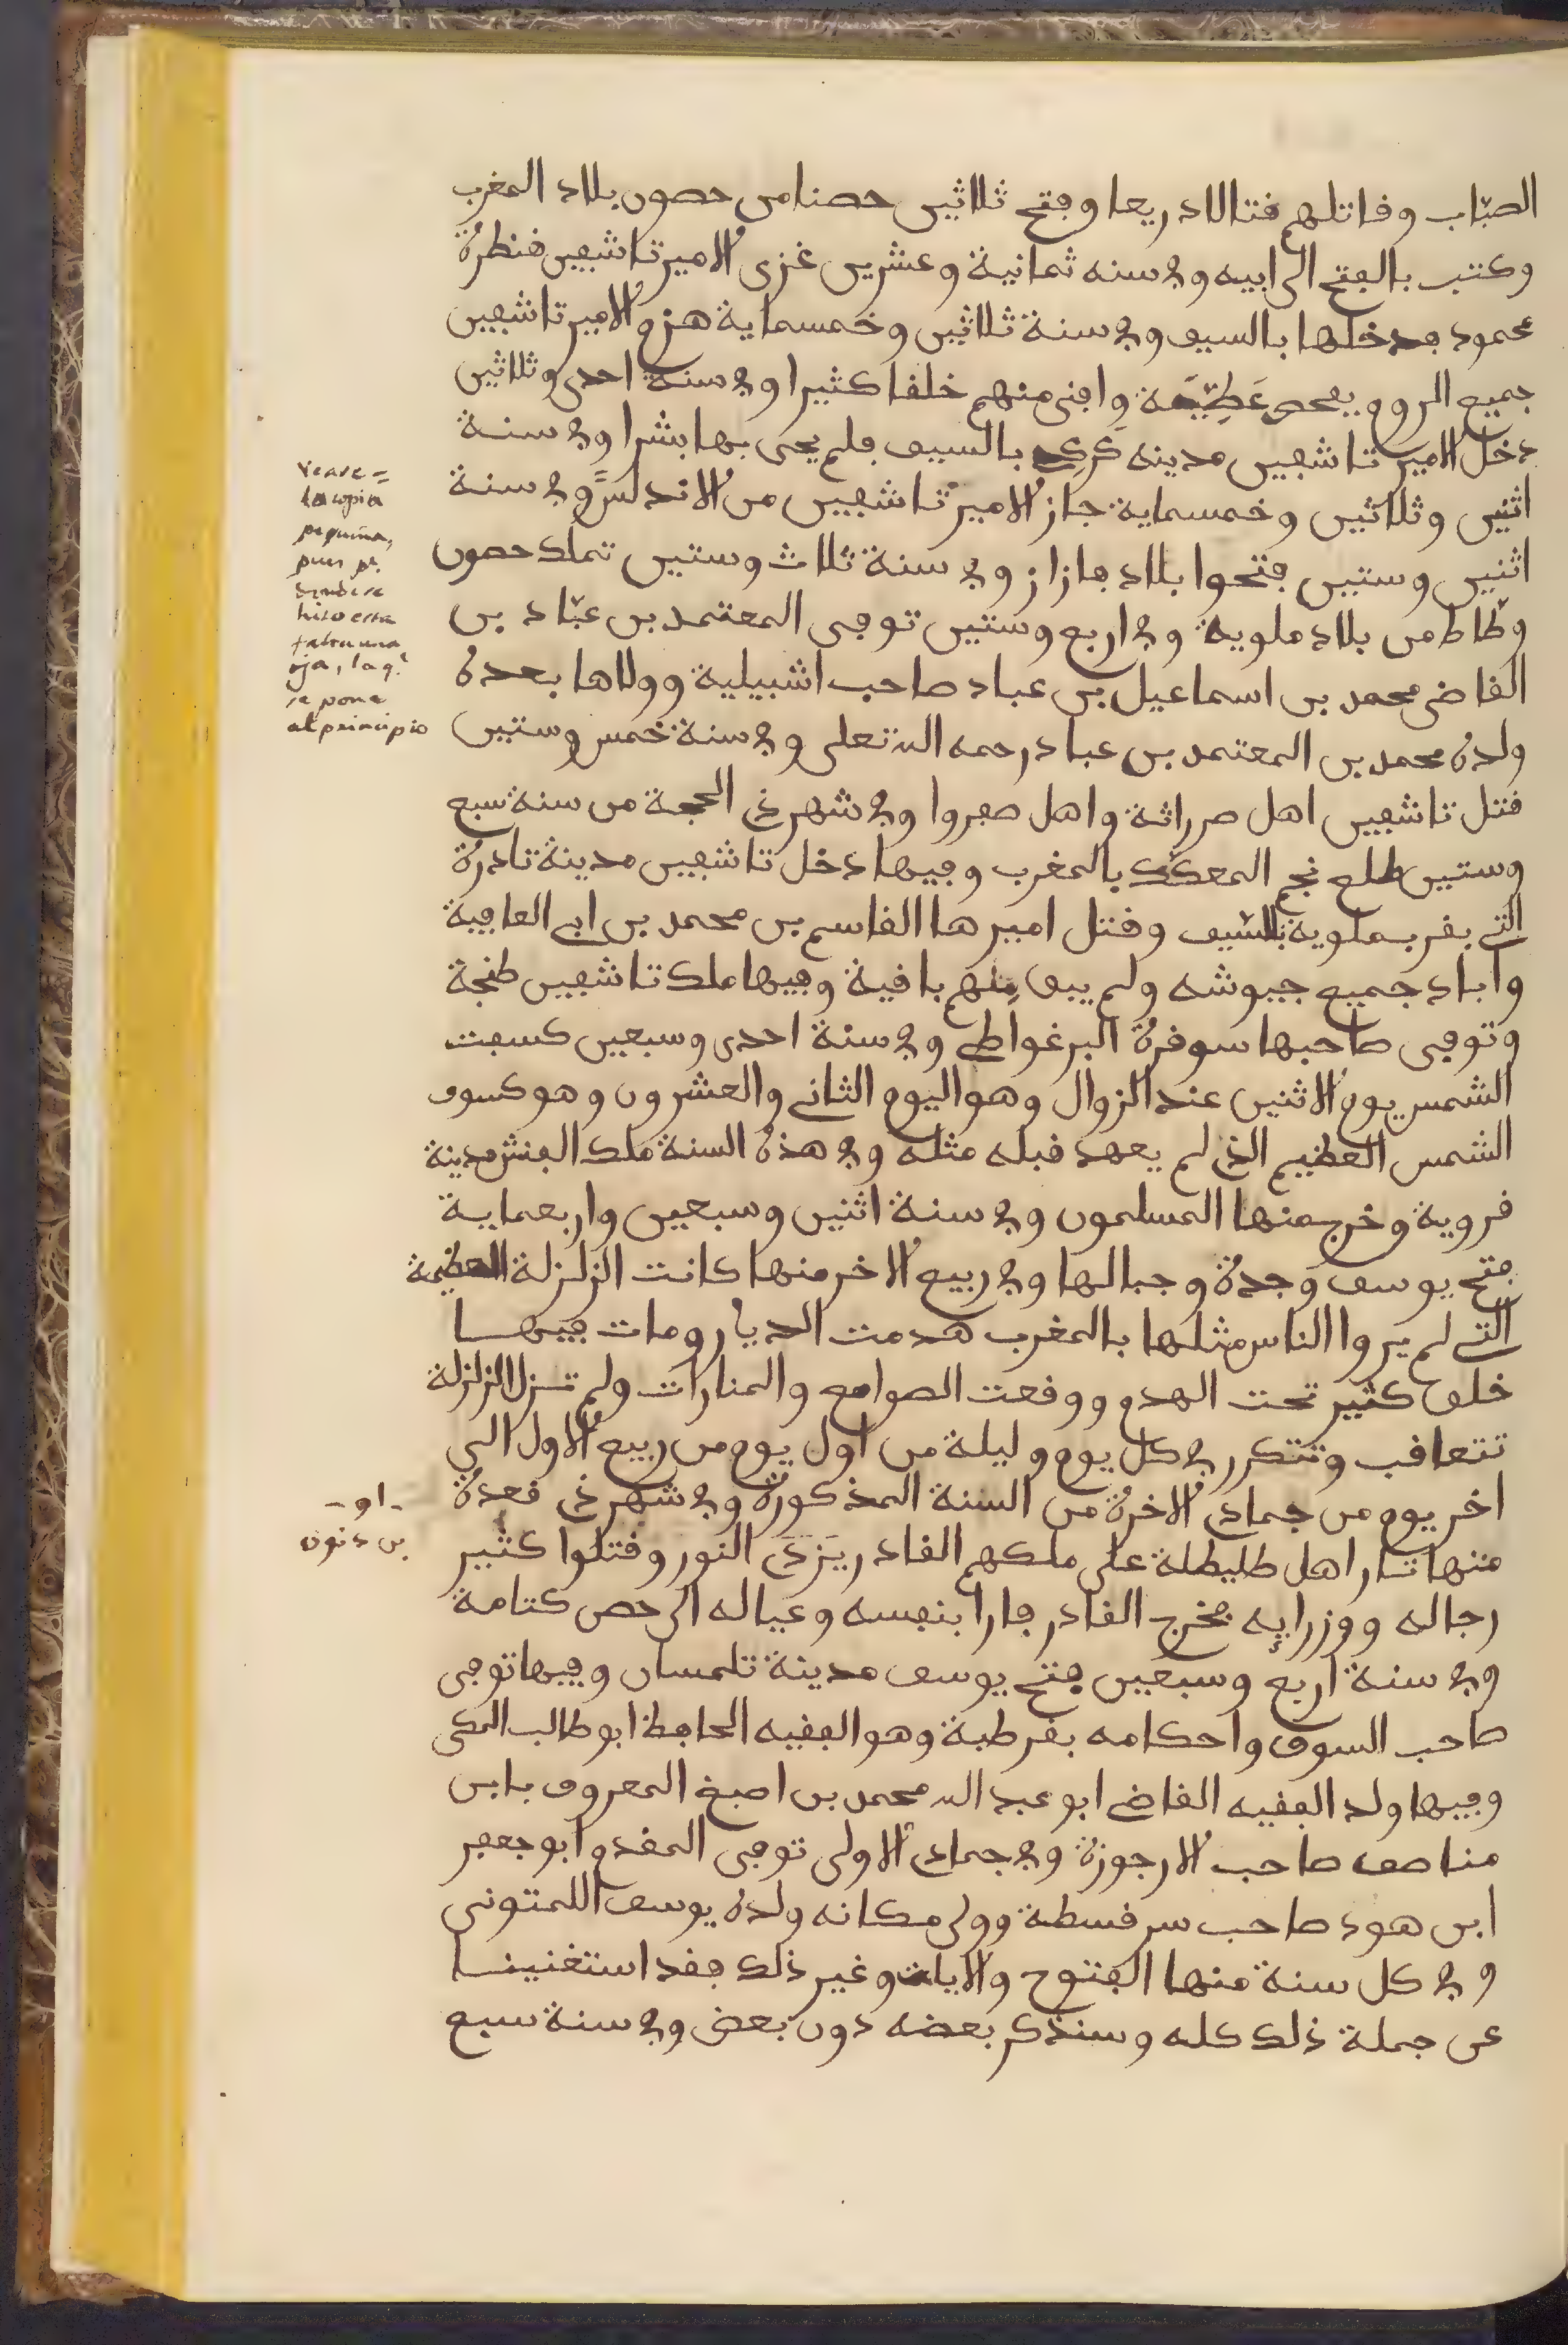 الصبّاب وقاتلهم قتالا دريعا وفتح ثلاثين حصنا من حصون بلاد المغرب
وكتب بالفتح الى ابيه وفي سنه ثمانية وعشرين غزى الامير تاشفين قنطرة
محمود فدخلها بالسيف وفي سنة ثلاثين وخمسماية هزم الامير تاشفين
جميع الروم بفحص عَطِيّة وافنى منهم خلقا كثيرا وفي سنة احدى وثلاثين
دخل الامير تاشفين مدينه كَركى بالسيف فلم يحى بها بشرا وفي سنة
اثنين وثلاثين وخمسماية جاز الامير تاشفين من الاندلس وفي سنة
اثنين وستين فتحوا بلاد فازاز وفي سنة ثلاث وستين تملك حصون
وطّاط من بلاد ملوية وفي اربع وستين توفى المعتمد بن عبّاد بن
القاضى محمد بن اسماعيل بن عباد صاحب اشبيلية وولاها بعده
ولده محمد بن المعتمد بن عباد رحمه الله تعلى وفي سنة خمس وستين
قتل تاشفين اهل صرراثة واهل صفروا وفي شهر ذى الحجة من سنة سبع
وستين طلع نجم المعكك بالمغرب وفيها دخل تاشفين مدينة تادرة
التى بقرب ملوية بالسّيف وقتل اميرها القاسم بن محمد بن ابى العافية
واباد جميع جيوشه ولم يبق منهم باقية وفيها ملك تاشفين طنجة
وتوفى صاحبها سوقرة البرغواطى وفي سنة احدى وسبعين كسفت
الشمس يوم الاثنين عند الزوال وهو اليوم الثانى والعشرون وهو كسوف
الشمس العظيم الذى لم يعهد قبله مثله وفي هذه السنة ملك الفنش مدينة
قروية وخرج منها المسلمون وفي سنة اثنين وسبعين واربعماية
فتح يوسف وجدة وجبالها وفي ربيع الاخر منها كانت الزلزلة العظيمة
التى لم يروا الناس مثلها بالمغرب هدمت الديار ومات فيها
خلق كثير تحت الهدم ووقعت الصوامع والمنارات ولم تزل الزلزلة
تتعاقب وتتكرر في كل يوم وليلة من اول يوم من ربيع الاول الى
اخر يوم من جمادى الاخرة من السنة المذكورة وفي شهر ذى قعدة
منها تار اهل طليطلة على ملكهم القادر يَزدَى النور وقتلوا كثير
رجاله ووزرايه فخرج القادر فارا بنفسه وعياله الى حصن كتامة
وفي سنة اربع وسبعين فتح يوسف مدينة تلمسان وفيها توفى
صاحب السوق واحكامه بقرطبة وهو الفقيه الحافظ ابو طالب المكى
وفيها ولد الفقيه القاضى ابو عبد الله محمد بن اصبغ المعروف بابن
مناصف صاحب الارجوزة وفي جمادى الاولى توفى المقدم ابو جعفر
ابن هود صاحب سرقسطة وولى مكانه ولده يوسف اللمتونى
وفي كل سنة منها الفتوح والايات وغير ذلك فقد استغنينا
عن جملة ذلك كله وسنذكر بعضه دون بعض وفي سنة سبع
Veave =
la copia
pequeña,
pues pr.
hito esta
falta una
oja, la q.e
se pone
al principio
- او -
بن دنون